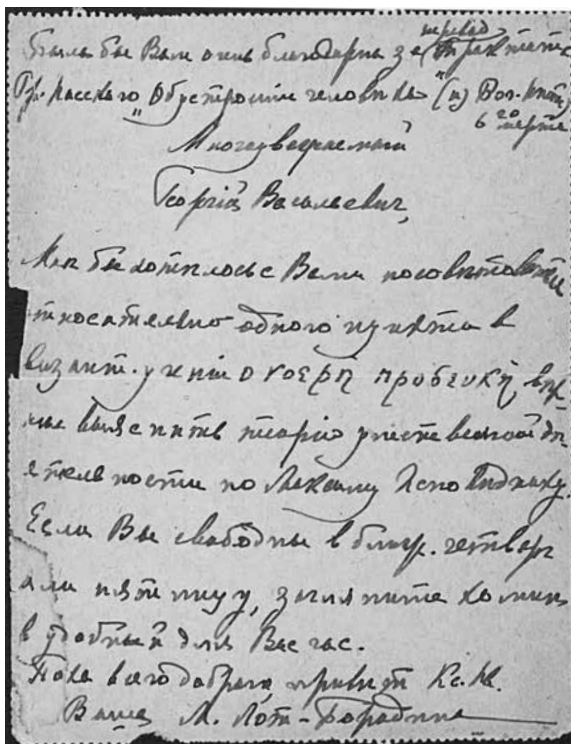 перевод
была бы Вам очень благодарна за трактат
Гр. Нисскаго „Об устроении человека" (из
6 го марта
Многоуважаемый
Георгій Васильевич,
Мне бы хотелось с Вами посоветоваться
относительно одного пункта в
визант. учении о νοερὴ προσευχή,
выяснить теорію умственной дея-
тельности по Максиму Исповеднику.
Если Вы свободны в ближ. четверг
или пятницу, загляните ко мне
в удобный для Вас час.
Пока всего добраго, привет Кс. Ив.
Ваша М. Лот-Бородина